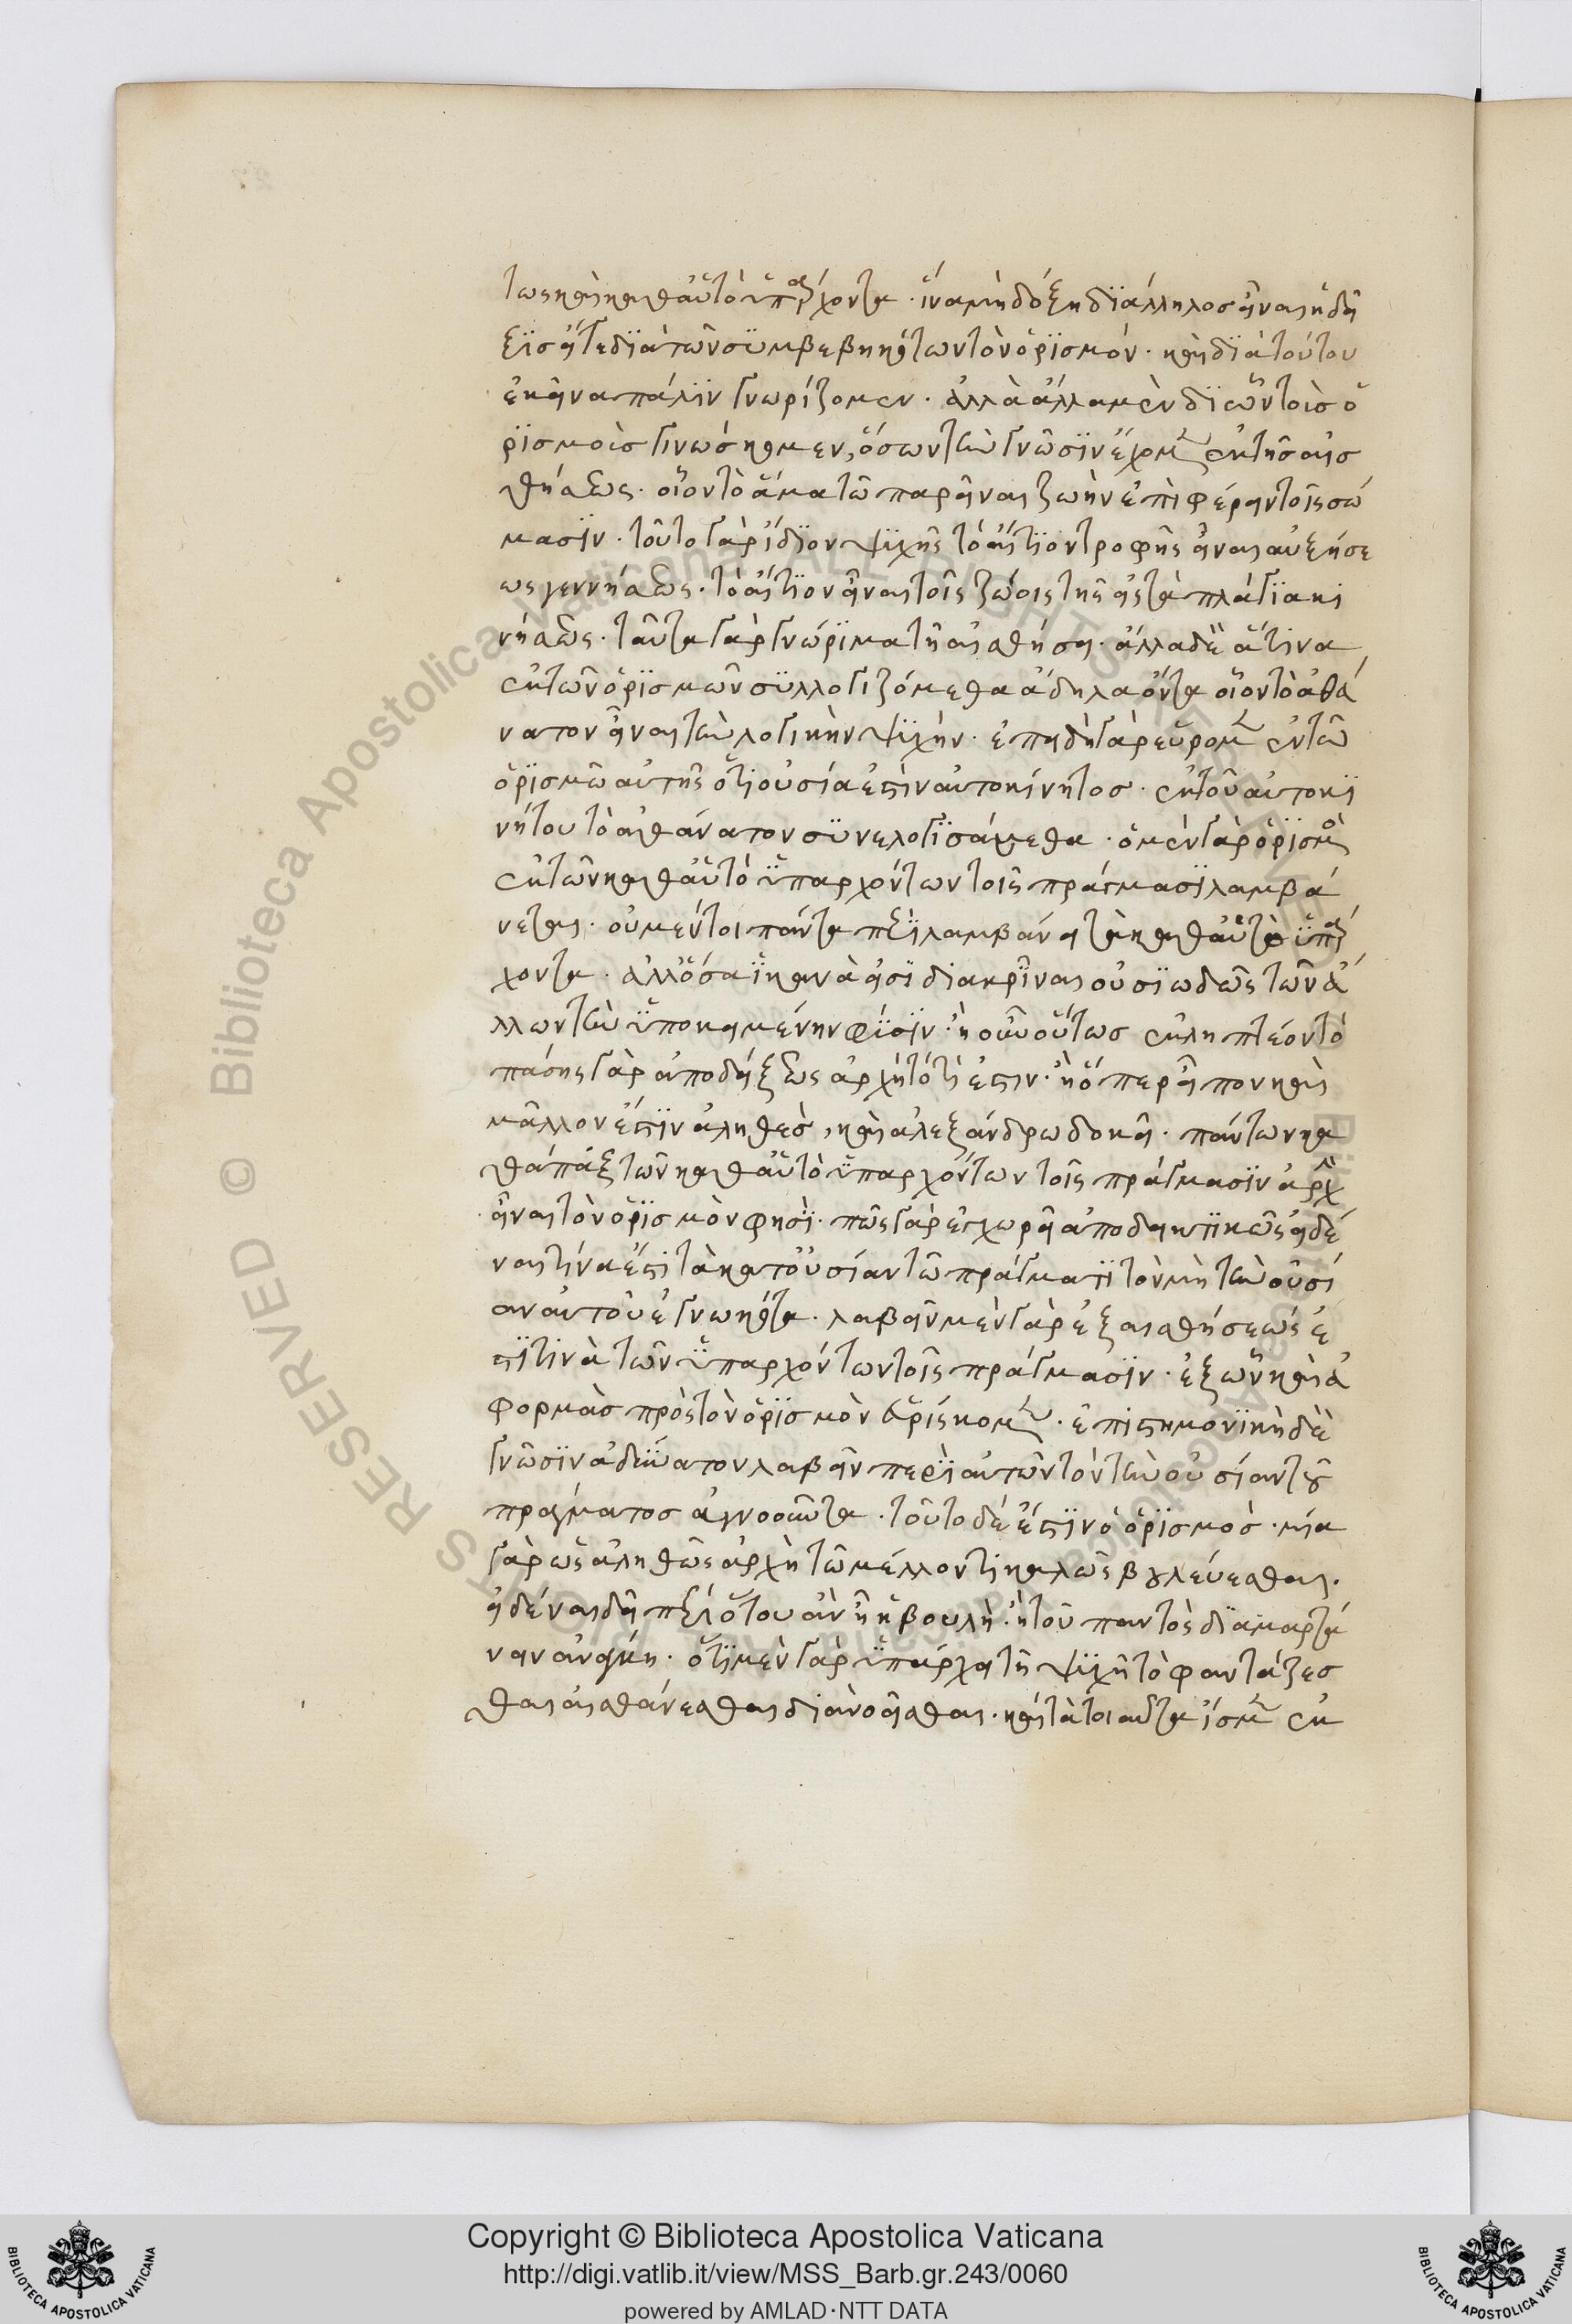 τως καὶ καθ αὑτὸ ὑπάρχοντα · ἵνα μὴ δόξη διάλληλος εἶναι ἡ δεῖ
ξις εἴτε διὰ τῶν συμβεβηκότων τὸν ὁρισμόν · καὶ διὰ τούτου
ἐκεῖνα πάλιν γνωρίζομεν · ἀλλὰ ἄλλα μὲν δι ὧν τοῖς ὁ
ρισμοῖς γινώσκομεν, ὅσων τὴν γνῶσιν ἔχομεν ἐκ τῆς αἰσ
θήσεως · οἷον τὸ ἅμα τῶ παρεῖναι ζωὴν ἐπιφέρειν τοῖς σώ
μασιν · τοῦτο γὰρ ἴδιον ψυχῆς τὸ αἴτιον τροφῆς εἶναι αὐξήσε
ως γεννήσεως · τὸ αἴτιον εἶναι τοῖς ζώοις τῆς εἰς τὰ πλάγια κι
νήσεως · ταῦτα γὰρ γνώριμα τῆ αἰσθήσει · ἄλλα δὲ ἅτινα
ἐκ τῶν ὁρισμῶν συλλογιζόμεθα ἄδηλα ὄντα οἷον τὸ ἀθά
νατον εἶναι τὴν λογικὴν ψυχήν · ἐπειδὴ γὰρ εὕρομεν ἐν τῶ
ὁρισμῶ αὐτῆς ὅτι οὐσία ἐστὶν αὐτοκίνητος · ἐκ τοῦ αὐτοκι
νήτου τὸ ἀθάνατον συνελογισάμεθα · ὁ μὲν γὰρ ὁρισμὸς
ἐκ τῶν καθ αὑτὸ ὑπαρχόντων τοῖς πράγμασι λαμβά
νεται · οὐ μέντοι πάντα περιλαμβάνει τὰ καθ αὑτὰ ὑπάρ
χοντα · ἀλλ ὅσα ἱκανὰ εἰσὶ διακρῖναι οὐσιωδῶς τῶν ἄ
λλων τὴν ὑποκειμένην φύσιν · ἢ οὖν οὕτως ἐκληπτέον τὸ
πάσης γὰρ ἀποδείξεως ἀρχὴ τὸ τί ἐστιν · ἢ ὅπερ εἶπον καὶ
μᾶλλον ἐστὶν ἀληθὲς, καὶ ἀλεξάνδρω δοκεῖ · πάντων κα
θάπαξ τῶν καθ αὑτὸ ὑπαρχόντων τοῖς πράγμασιν ἀρχὴ
εἶναι τὸν ὁρισμὸν φησὶ · πῶς γὰρ ἐγχωρεῖ ἀποδεικτικῶς εἰδέ
ναι τίνα ἐστὶ τὰ κατ οὐσίαν τῶ πράγματι τὸν μὴ τὴν οὐσί
αν αὐτοῦ ἐγνωκότα · λαβεῖν μὲν γὰρ ἐξ αἰσθήσεως ἔ
στι τινὰ τῶν ὑπαρχόντων τοῖς πράγμασιν · ἐξ ὧν καὶ ἀ
φορμὰς πρὸς τὸν ὁρισμὸν εὑρίσκομεν · ἐπιστημονικὴ δὲ
γνῶσιν ἀδύνατον λαβεῖν περὶ αὐτῶν τὸν τὴν οὐσίαν τοῦ
πράγματος ἀγνοοῦντα · τοῦτο δέ ἐστιν ὁ ὁρισμός · μία
γὰρ ὡς ἀληθῶς ἀρχὴ τῶ μέλλοντι καλῶς βουλεύεσθαι ·
εἰδέναι δεῖ περὶ ὅτου ἂν ἦ ἡ βουλὴ · ἢ τοῦ παντὸς διαμαρτά
νειν ἀνάγκη · ὅτι μὲν γὰρ ὑπάρχει τῆ ψυχῆ τὸ φαντάζεσ
θαι αἰσθάνεσθαι διανοεῖσθαι · καὶ τὰ τοιαῦτα ἴσμεν ἐκ
Copyright © Biblioteca Apostolica Vaticana
http://digi.vatlib.it/view/MSS_Barb.gr.243/0060
powered by AMLAD·NTT DATA